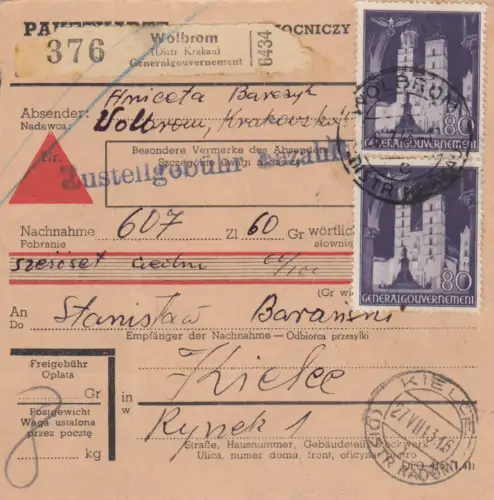 376
Wolbrom
(Distr Krakau)
Generalgouvernement
6434
OCNICZY
Absender:
Nadawca:
Aniceta
Wolbrom, Krakowska
Besondere Vermerke des Absenders
Szczególne uwagi nadawcy
Zustellgebühr bezahlt
Nachnahme 607 Zl 60 Gr wörtlich
Pobranie słownie
sześćset siedm 60/100
(Gr wie
An Stanisław Barański
Do
Empfänger der Nachnahme - Odbiorca przesyłki
Freigebühr
Opłata
Gr
Postgewicht
Waga ustalona
przez pocztę
kg
8
in Kielce
w
Rynek 1
Straße, Hausnummer, Gebäudeteil, Stockwerk
Ulica, numer domu, front, oficyna, piętro
80
GENERALGOUVERNEMENT
80
GENERALGOUVERNEMENT
WOLBROM
KIELCE
(DISTR RADOM)